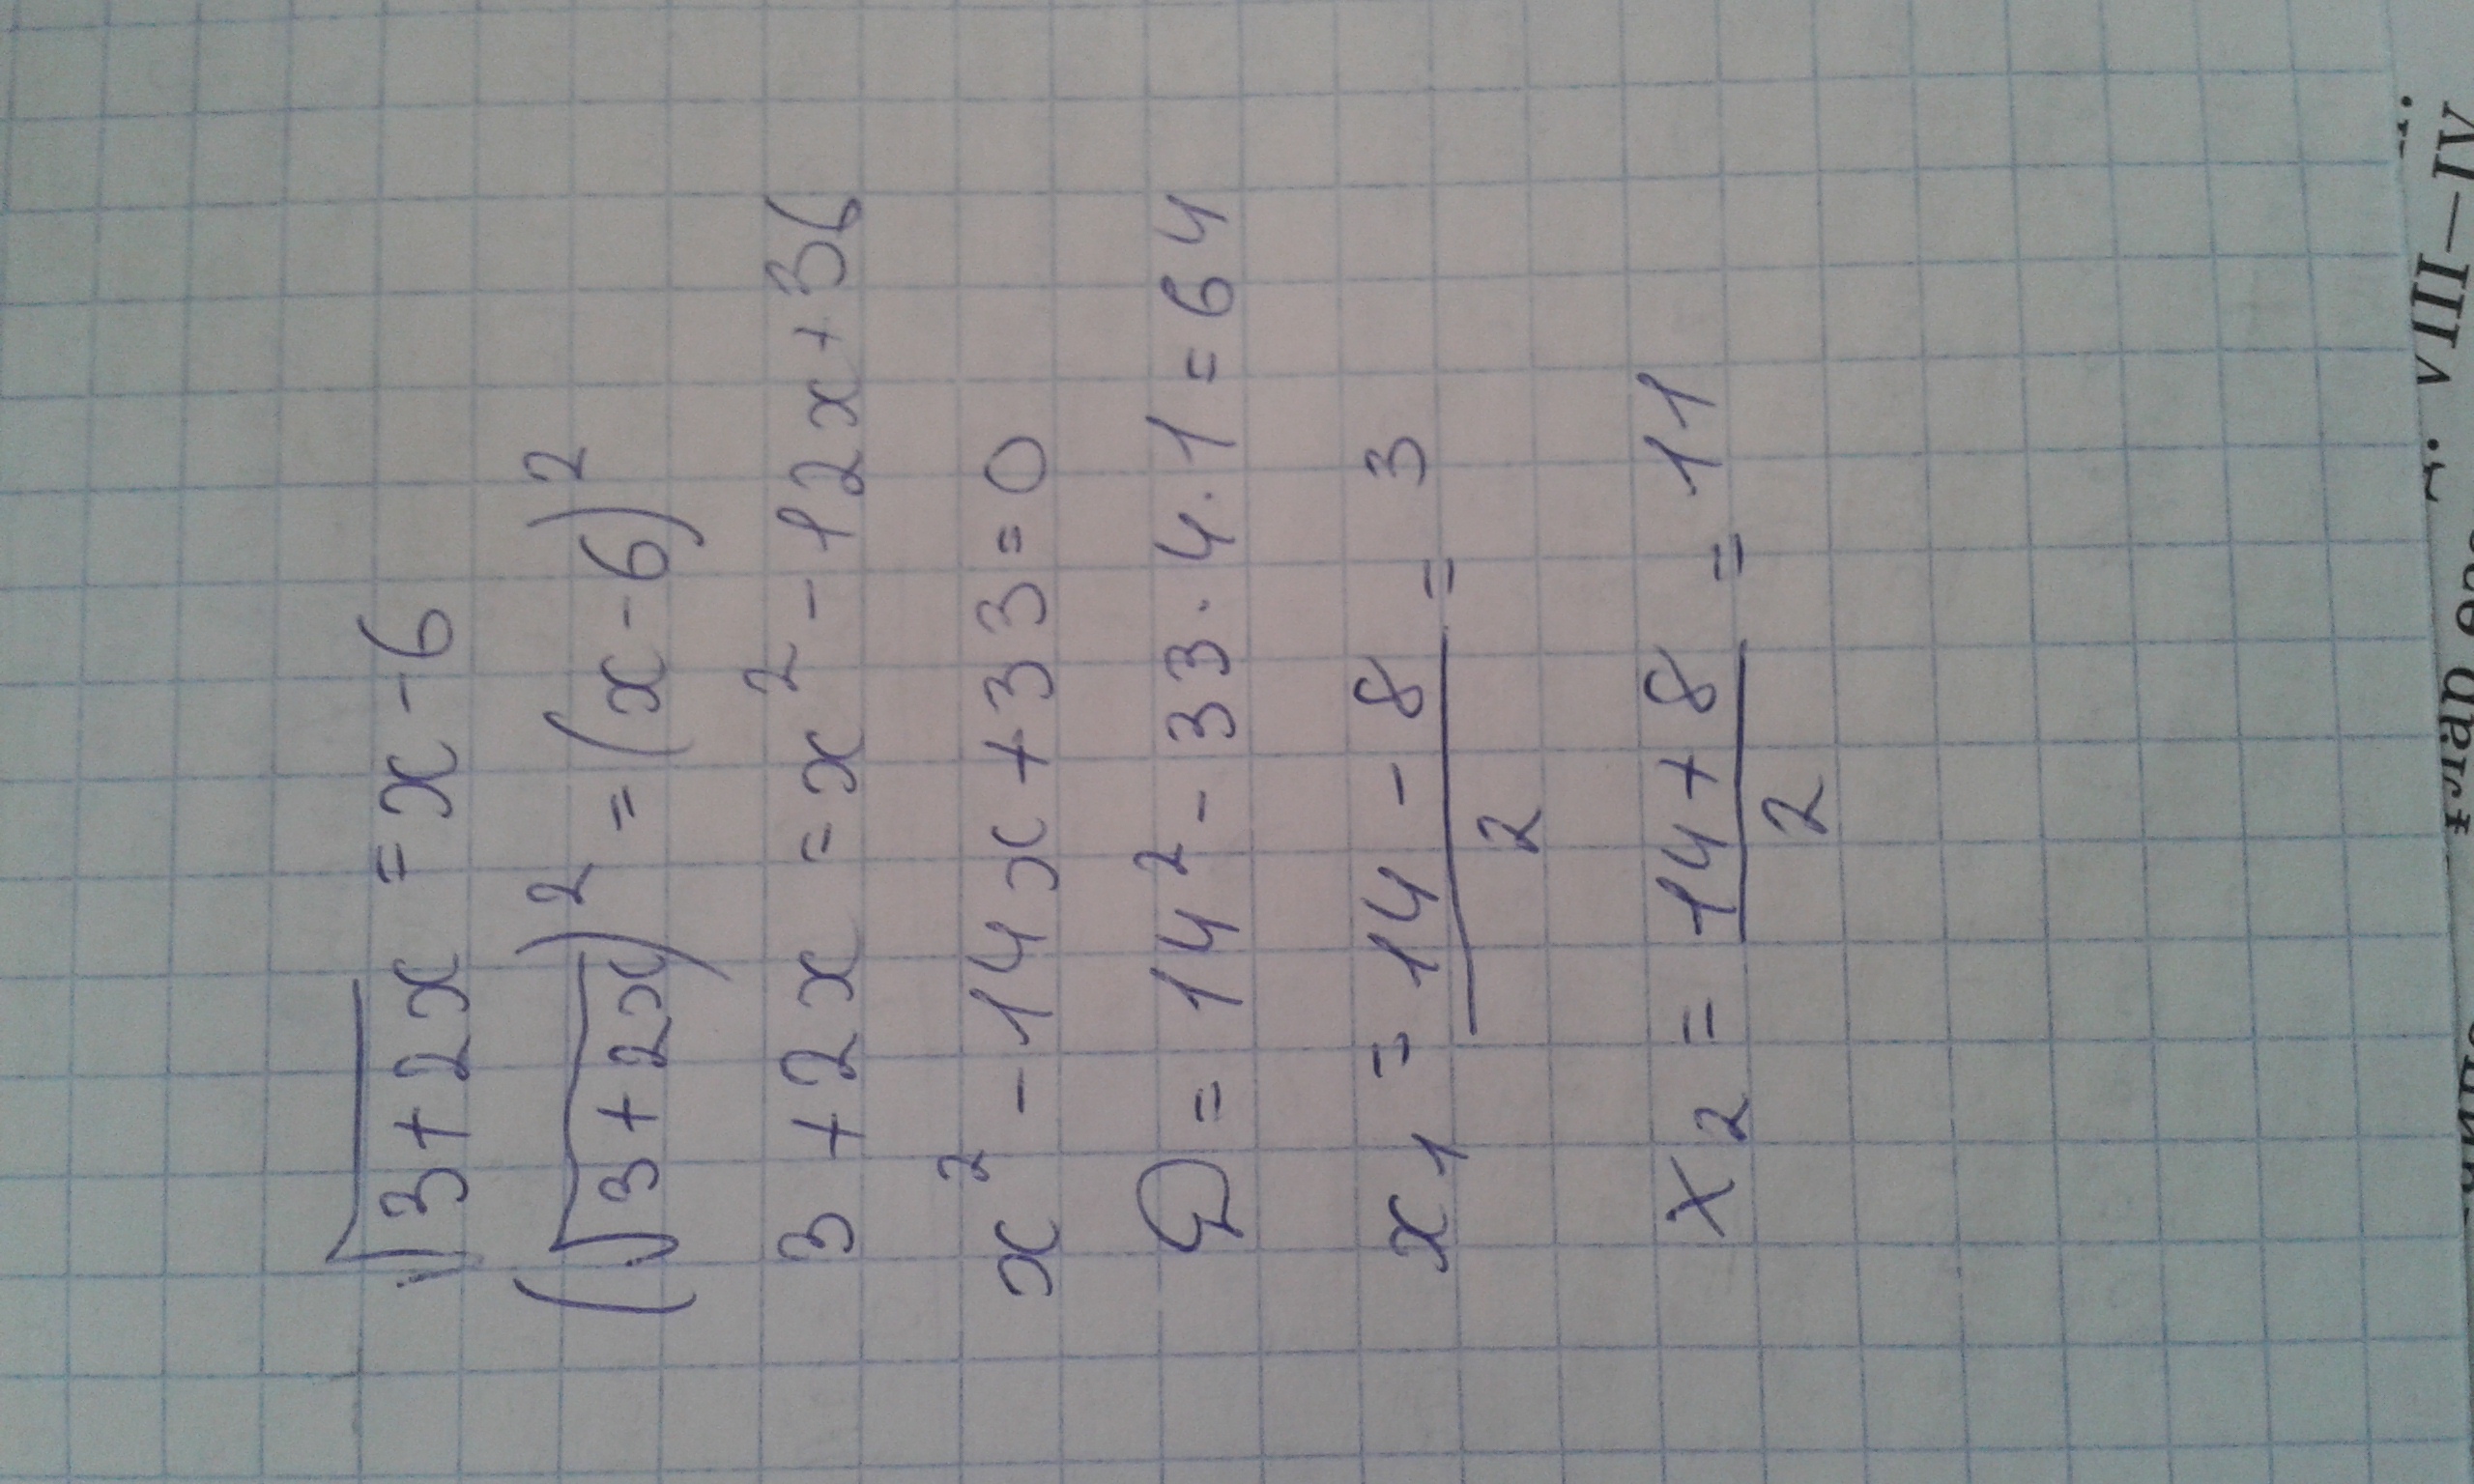 √3+2x = x-6
(√3+2x)² = (x-6)²
3+2x = x²-12x+36
x²-14x+33=0
D = 14²-33·4·1=64
x₁ = 14-8/2 = 3
x₂ = 14+8/2 = 11
VIII—IV